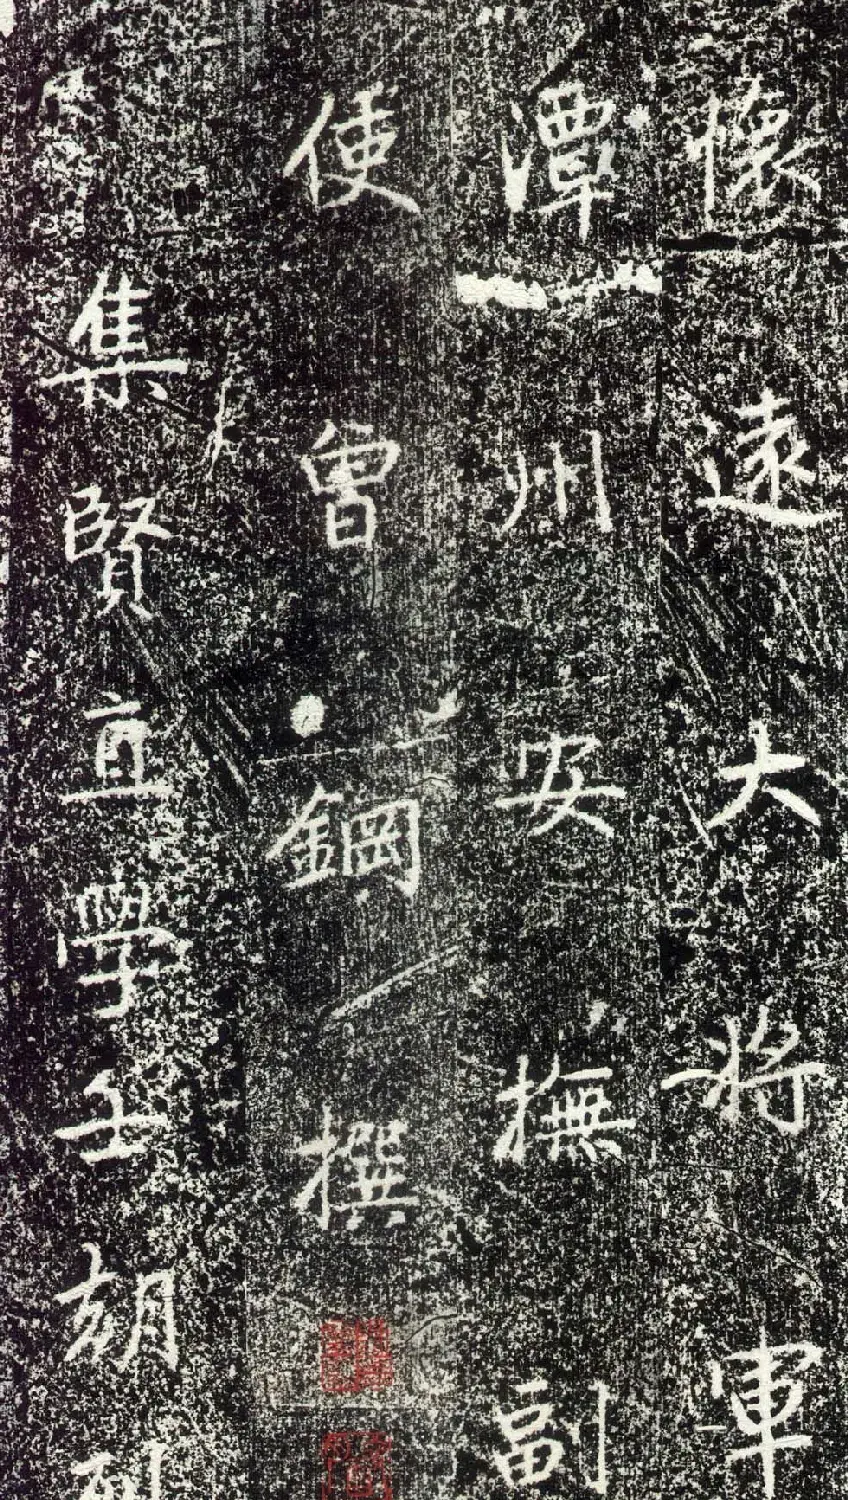 懷遠大將軍
潭州安撫副
使曾鋼撰
集賢直學士胡